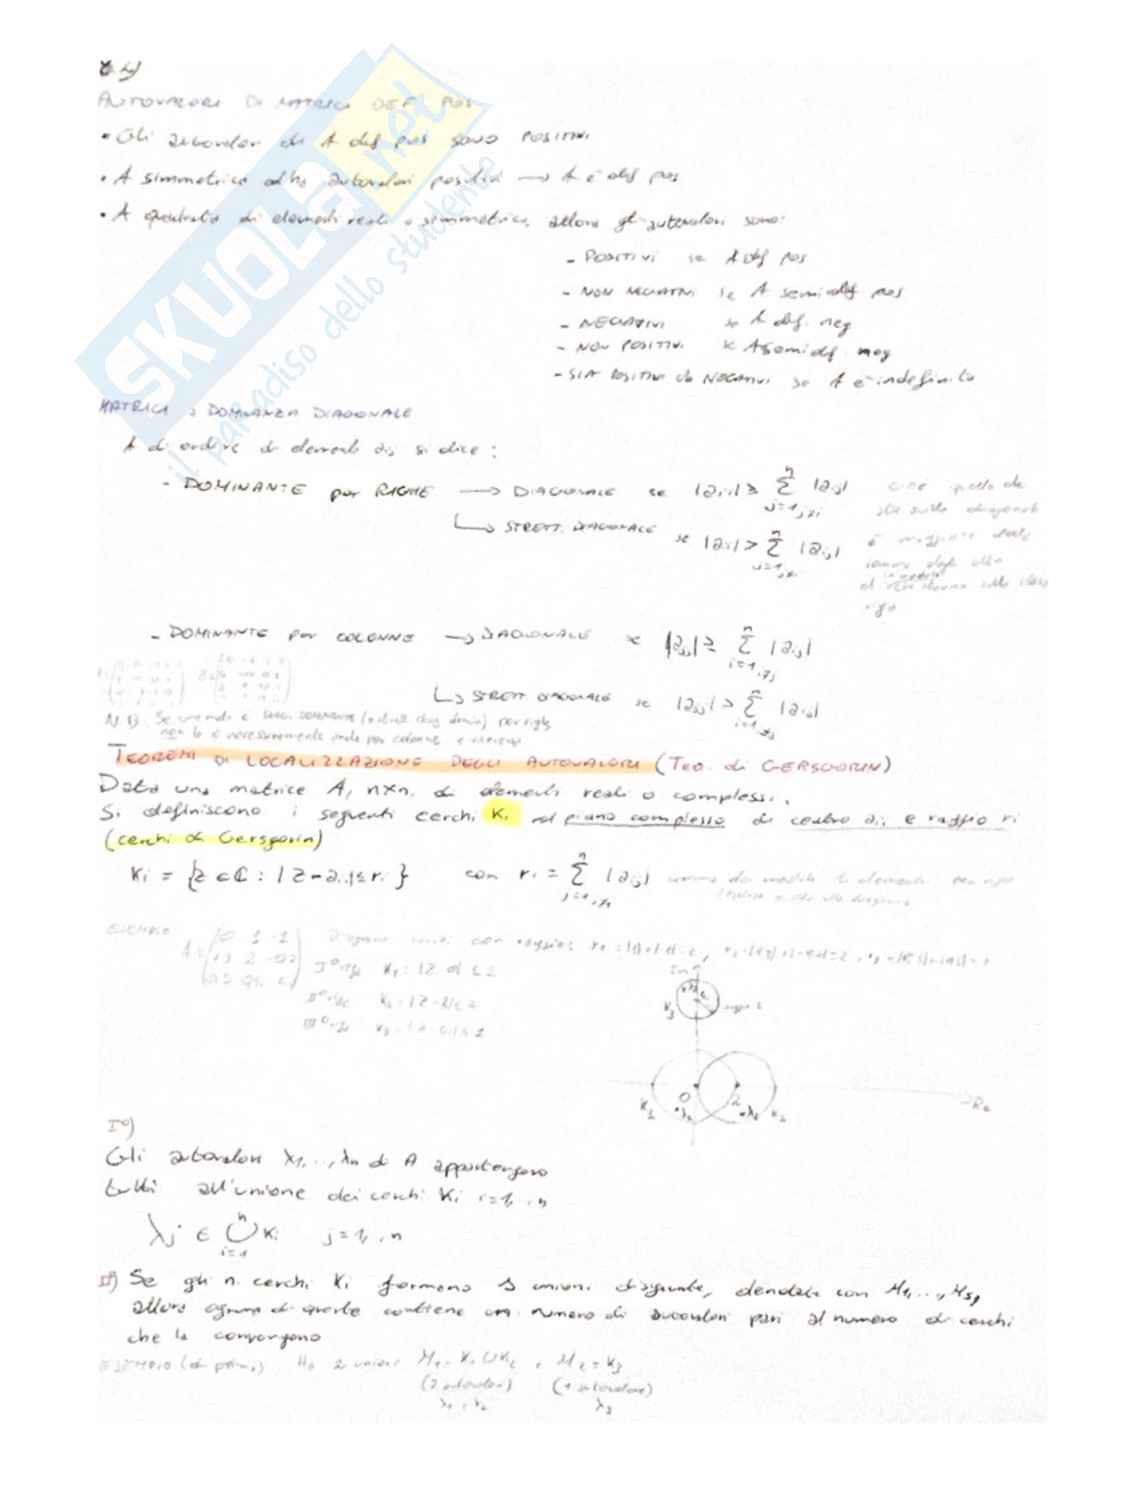 AUTOVALORI DI MATRICI DEF POS
• Gli autovalori di A def pos sono POSITIVI
• A simmetrica ed ha autovalori positivi → A è def pos
• A quadrata di elementi reali e simmetrica, allora gli autovalori sono:
- POSITIVI se A def pos
- NON NEGATIVI se A semidef pos
- NEGATIVI se A def. neg
- NON POSITIVI se A semidef. neg
- SIA POSITIVI che NEGATIVI se A è indefinita
SKUOLA.net
il paradiso dello studente
MATRICI a DOMINANZA DIAGONALE
A di ordine di elementi aij si dice:
- DOMINANTE per RIGHE → DIAGONALE se |aii| ≥ Σ |aij| cioè quello che
n
j=1,≠i
sta sulla diagonale
↳ STRETT. DIAGONALE se |aii| > Σ |aij| è maggiore
n
j=1,≠i
riga
- DOMINANTE per COLONNE → DIAGONALE se |ajj| ≥ Σ |aij|
n
i=1,≠j
↳ STRETT. DIAGONALE se |ajj| > Σ |aij|
n
i=1,≠j
N.B) Se una matr è DOMINANTE per righe
non lo è necessariamente anche per colonne e viceversa
TEOREMI DI LOCALIZZAZIONE DEGLI AUTOVALORI (TEO. di GERSGORIN)
Data una matrice A, n×n, di elementi reali o complessi.
Si definiscono i seguenti cerchi Ki nel piano complesso di centro aii e raggio ri
(cerchi di Gersgorin)
Ki = {z ∈ ℂ : |z-aii| ≤ ri} con ri = Σ |aij| somma dei moduli elementi per riga
n
j=1,≠i
ESEMPIO
A = 0 1 -1
Disegnare cerchi con raggio:
I° riga K1: |z-0| ≤ 2
II° riga K2: |z-2| ≤ 2
III° riga K3:
Im
K3
0
2
λ1
λ2
K1
K2
Re
I°)
Gli autovalori λ1,..,λn di A appartengono
tutti all'unione dei cerchi Ki i=1,..n
λj ∈ ∪ Ki j=1,..n
n
i=1
II°) Se gli n cerchi Ki formano s unioni disgiunte, denotate con M1,..,Ms,
allora ognuna di queste contiene un numero di autovalori pari al numero di cerchi
che la compongono
ESEMPIO (di prima). Ho 2 unioni M1=K1∪K2 e M2=K3
(2 autovalori) (1 autovalore)
λ1, λ2 λ3